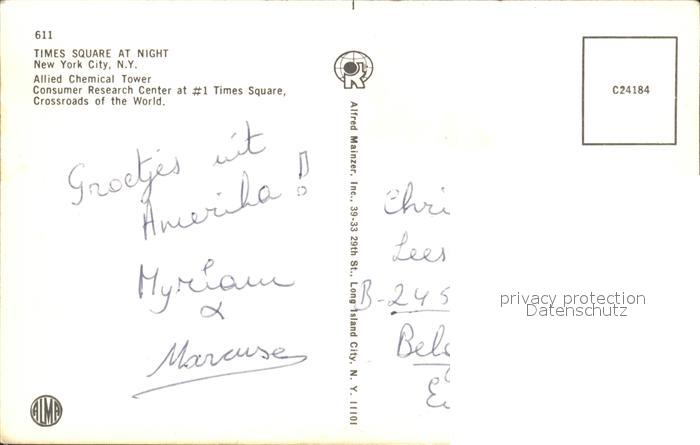 611
TIMES SQUARE AT NIGHT
New York City, N.Y.
Allied Chemical Tower
Consumer Research Center at #1 Times Square,
Crossroads of the World.
Groetjes uit
Amerika!
Myriam
&
Marcuse
ALMA
Alfred Mainzer, Inc., 39-33 29th St., Long Island City, N. Y. 11101
C24184
Chri
Lees
B-245
Belg
privacy protection
Datenschutz